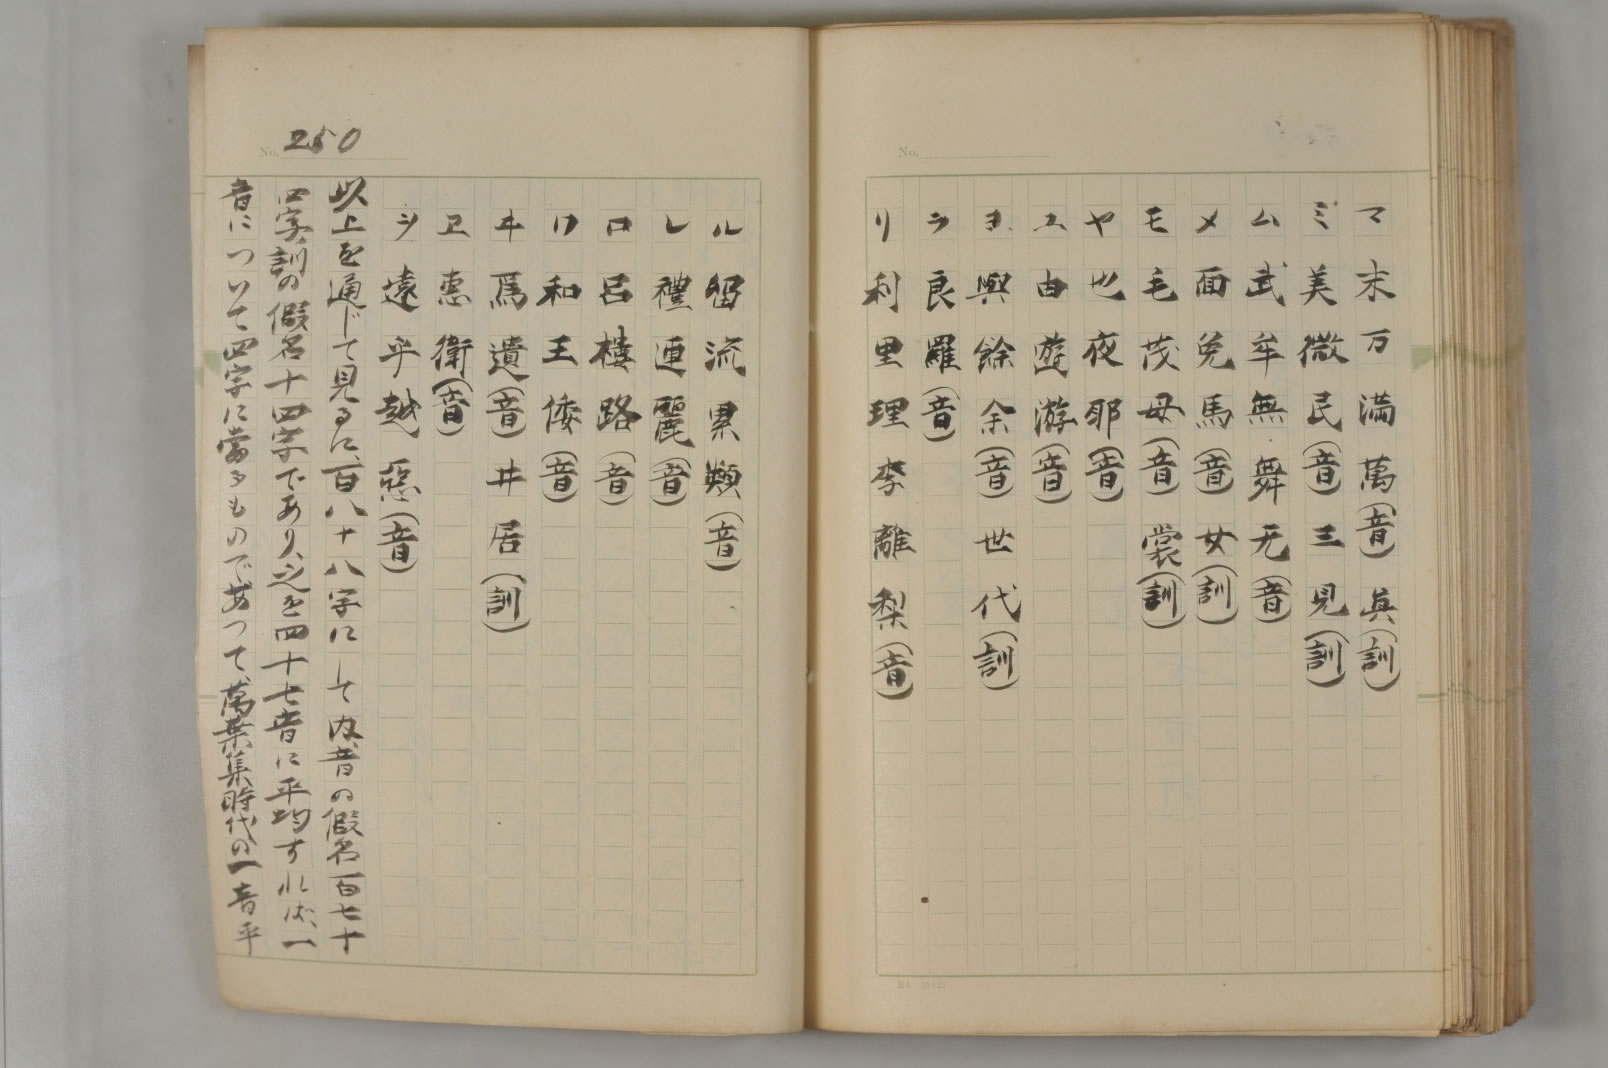 マ 末 万 満 萬(音) 眞(訓)
ミ 美 微 民(音) 三 見(訓)
ム 武 牟 無 舞 无(音)
メ 面 免 馬(音) 女(訓)
モ 毛 茂 母(音) 裳(訓)
ヤ 也 夜 耶(音)
ユ 由 遊 游(音)
ヨ 與 餘 余(音) 世 代(訓)
ラ 良 羅(音)
リ 利 里 理 李 離 梨(音)
No.
B4 10×25
No. 250
ル 留 流 累 類(音)
レ 禮 連 麗(音)
ロ 呂 樓 路(音)
ワ 和 王 倭(音)
ヰ 爲 遺(音) 井 居(訓)
ヱ 恵 衛(音)
ヲ 遠 乎 越 怨(音)
以上を通じて見るに、百八十八字にして内、音の假名一百七十
四字、訓の假名十四字であり、之を四十七音に平均すれば、一
音について四字に當るものであつて、萬葉集時代の一音平